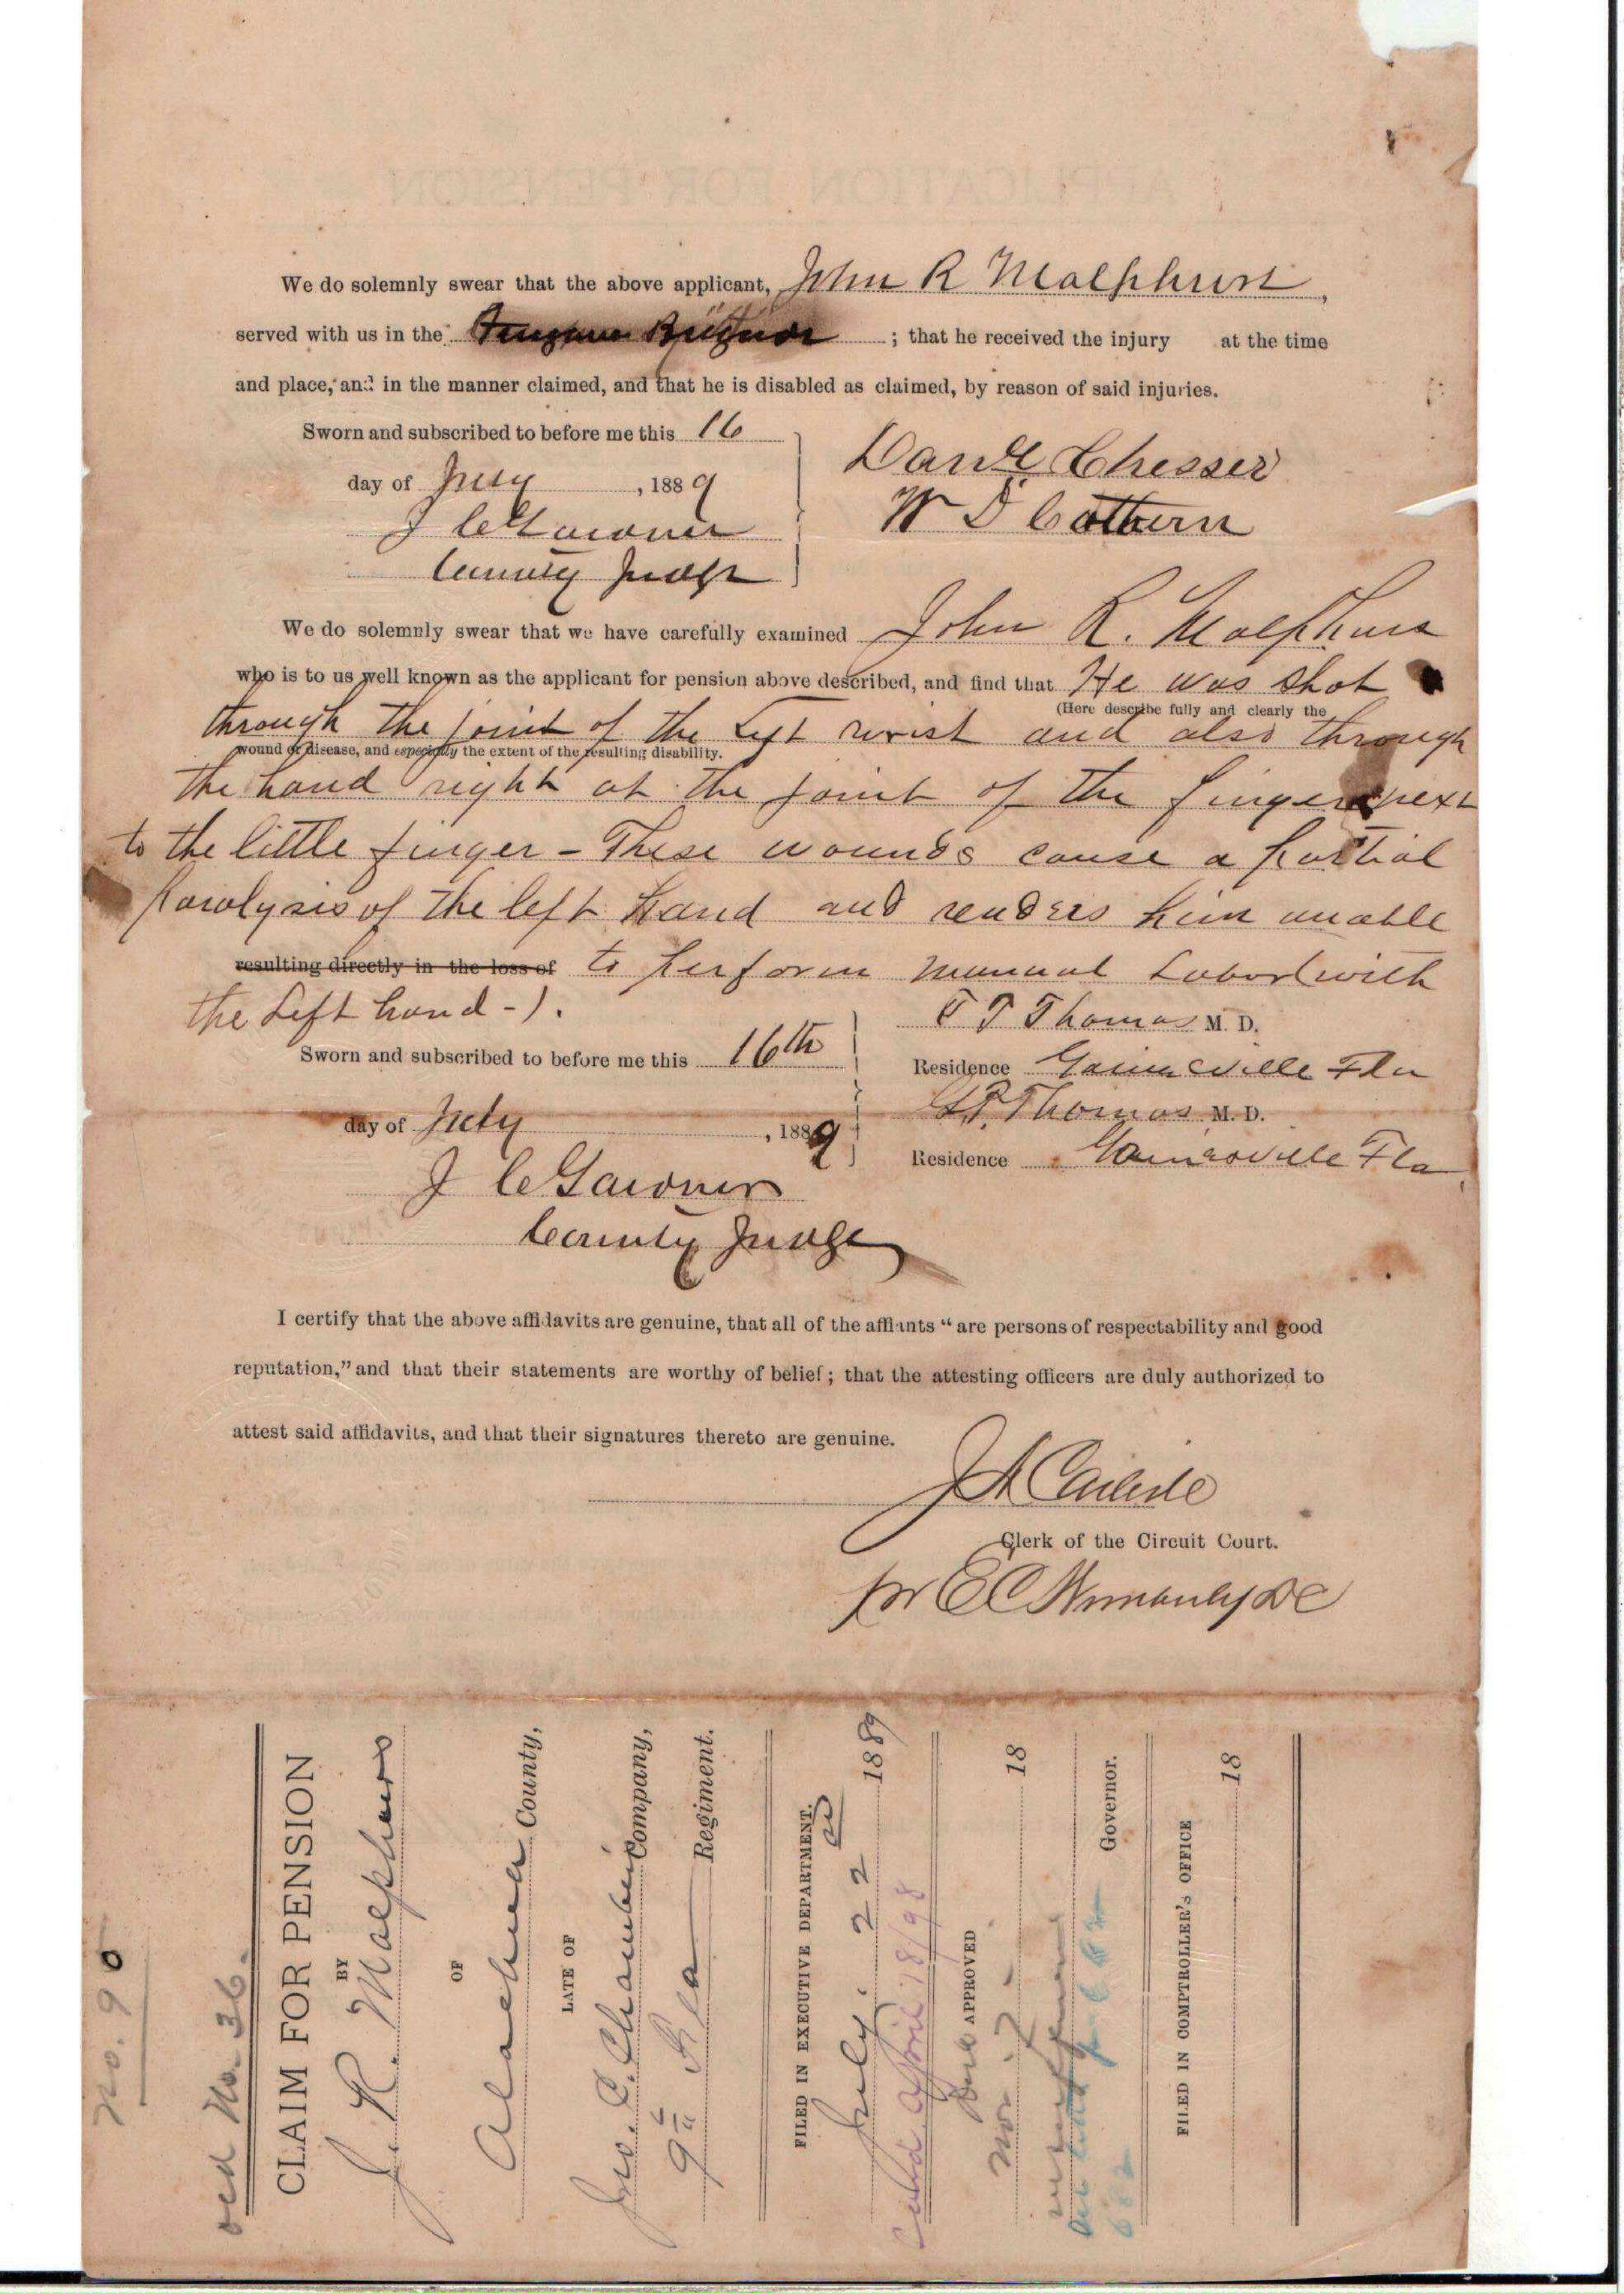 We do solemnly swear that the above applicant, John R Malphurst,
served with us in the ; that he received the injury at the time
and place, and in the manner claimed, and that he is disabled as claimed, by reason of said injuries.
Sworn and subscribed to before me this 16
day of July, 1889
J C Gardner
County Judge
Danl Chesser
W D Cothern
We do solemnly swear that we have carefully examined John R. Malphurs
who is to us well known as the applicant for pension above described, and find that He was shot
(Here describe fully and clearly the
through the joint of the Left wrist and also through
wound or disease, and especially the extent of the resulting disability.
the hand right at the joint of the finger next
to the little finger - These wounds cause a partial
paralysis of the left hand and renders him unable
resulting directly in the loss of to perform manual Labor (with
the Left hand -).
Sworn and subscribed to before me this 16th
day of July, 1889
J C Gardner
County Judge
T Thomas M. D.
Residence Gainesville Fla
Thomas M. D.
Residence Gainesville Fla
I certify that the above affidavits are genuine, that all of the affiants “are persons of respectability and good
reputation,” and that their statements are worthy of belief; that the attesting officers are duly authorized to
attest said affidavits, and that their signatures thereto are genuine.
J A Carlisle
Clerk of the Circuit Court.
pr E C DC
No. 90
No. 36.
CLAIM FOR PENSION
BY
J. R. Malphurs
OF
Alachua County,
LATE OF
Jno. C. Chambers Company,
9th Fla Regiment.
FILED IN EXECUTIVE DEPARTMENT.
July. 22 1889
April 18/98
APPROVED
Nov. 7 18
Governor.
FILED IN COMPTROLLER'S OFFICE
18